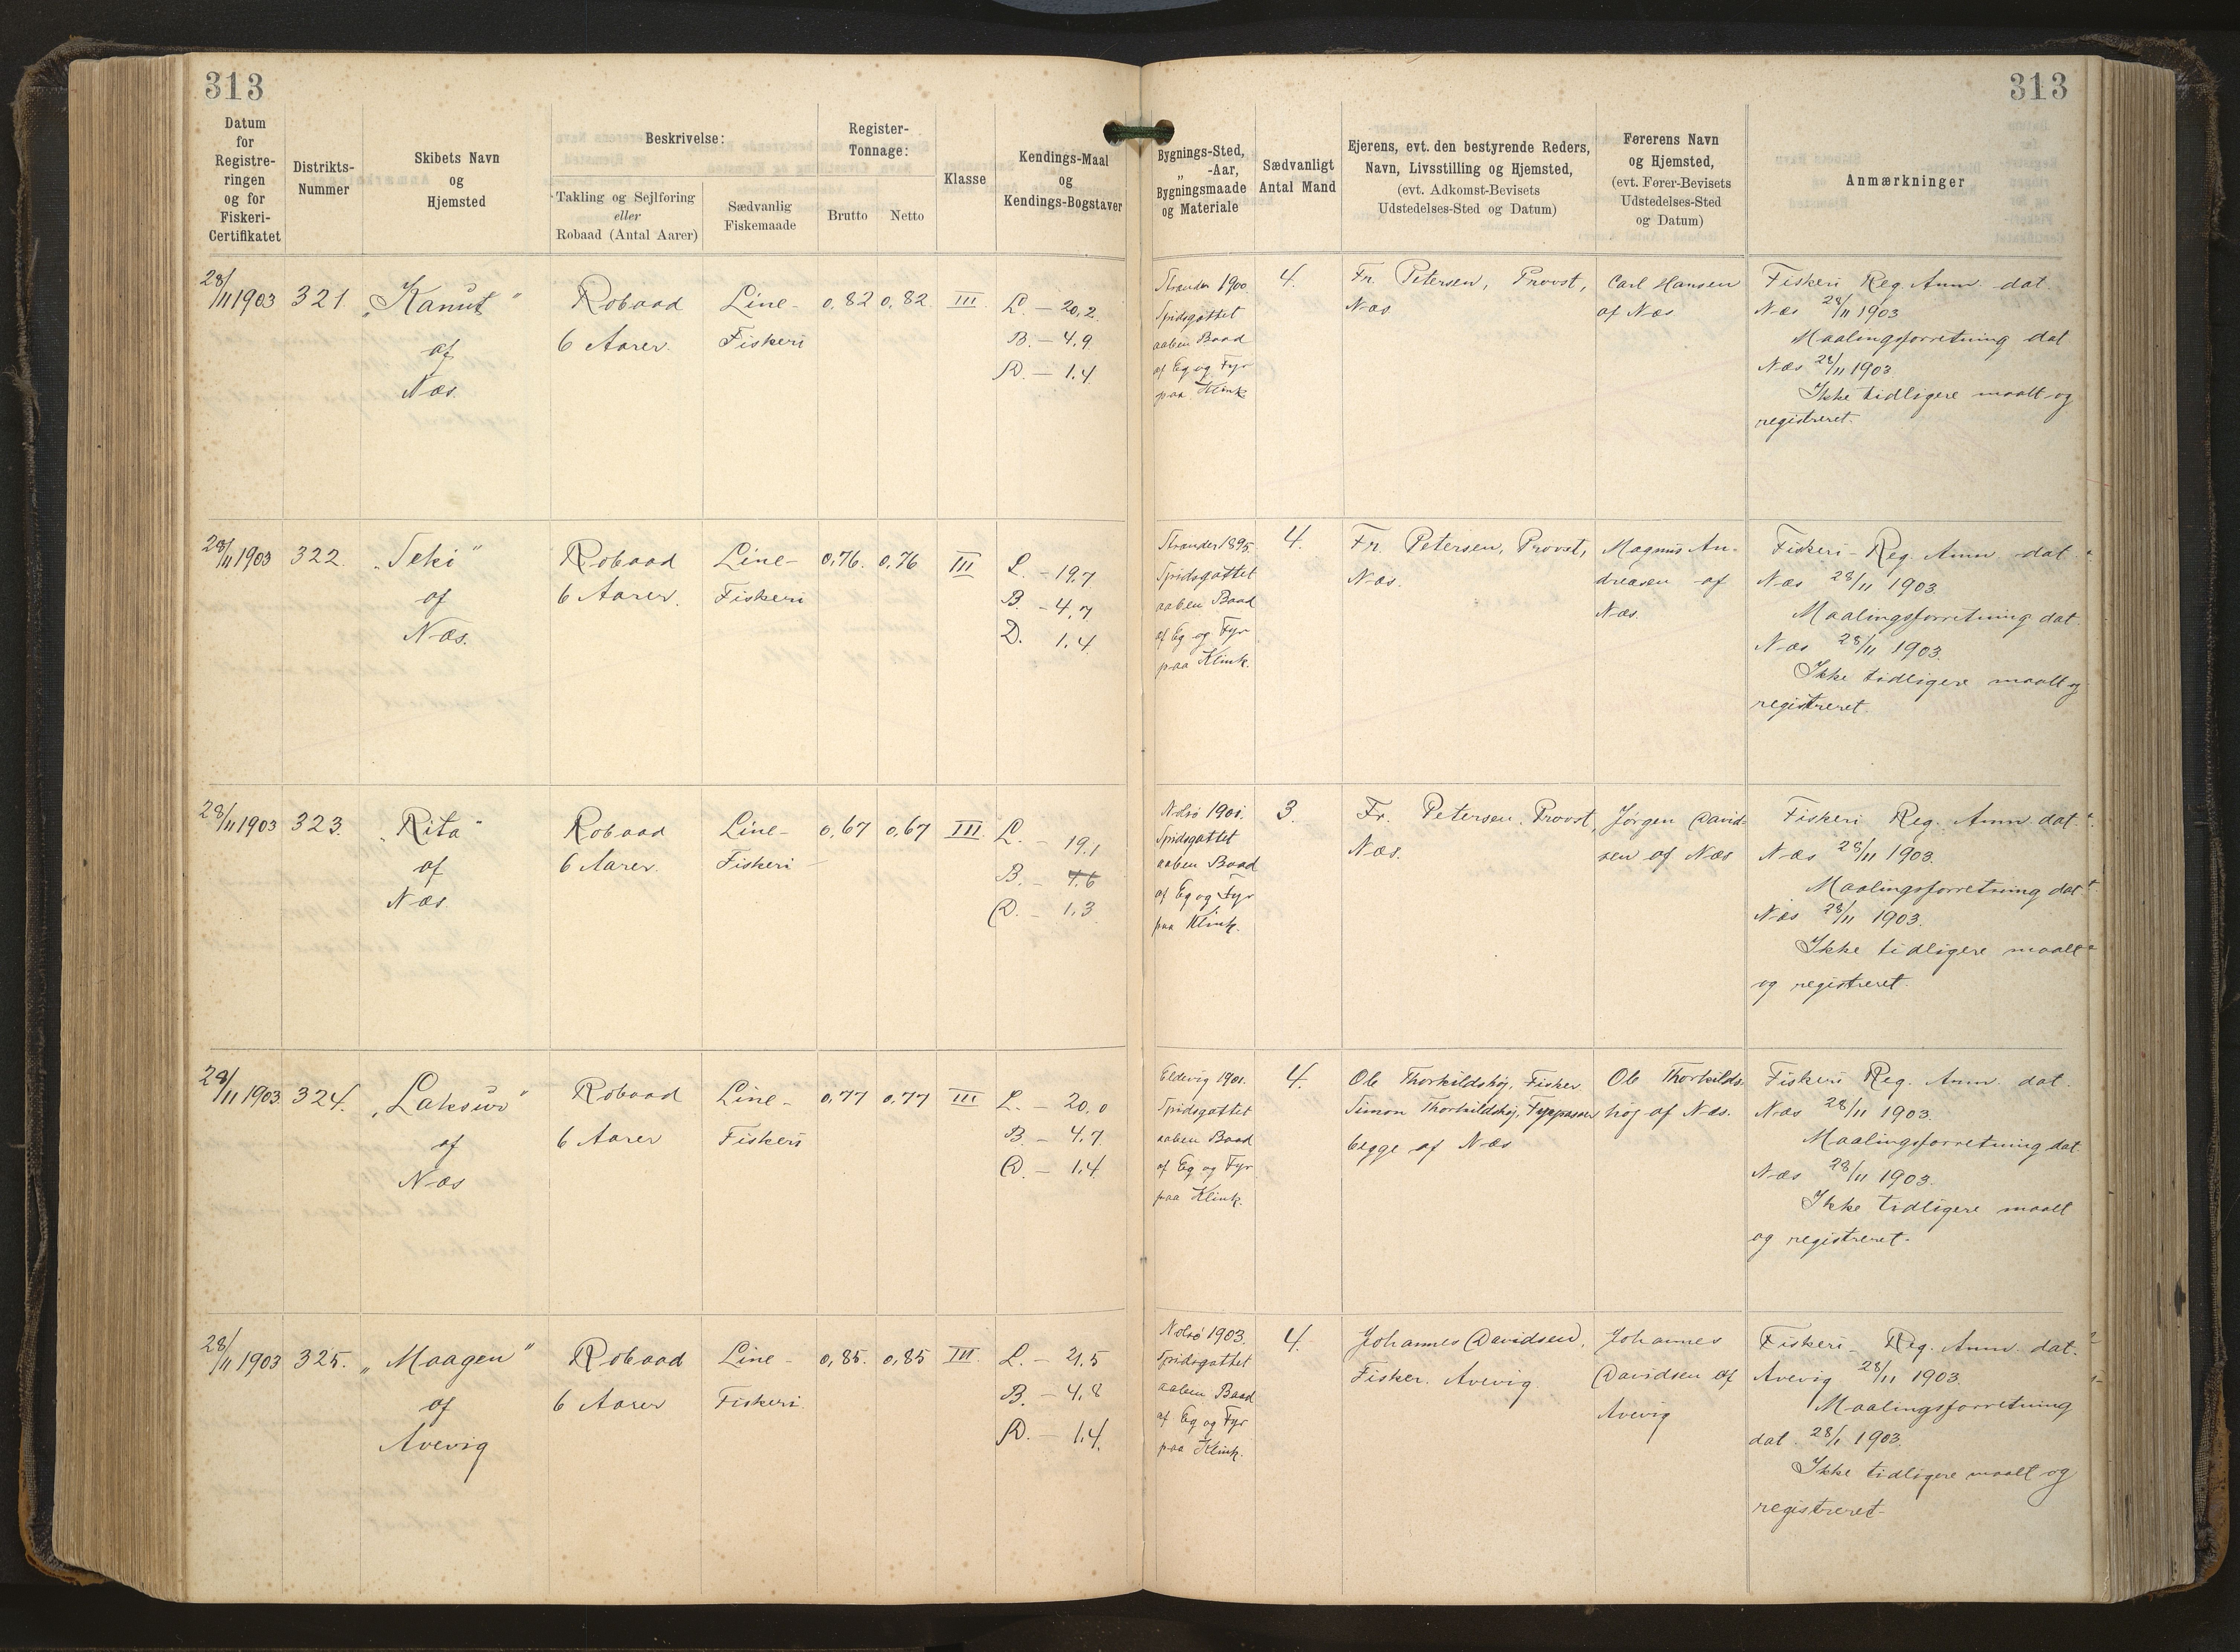 313
313
Datum
for
Registre-
ringen
og for
Fiskeri-
Certifikatet
Distrikts-
Nummer
Skibets Navn
og
Hjemsted
Beskrivelse:
Takling og Sejlføring
eller
Robaad (Antal Aarer)
Sædvanlig
Fiskemaade
Register-
Tonnage:
Brutto
Netto
Klasse
Kendings-Maal
og
Kendings-Bogstaver
Bygnings-Sted,
„ -Aar,
Bygningsmaade
og Materiale
Sædvanligt
Antal Mand
Ejerens, evt. den bestyrende Reders,
Navn, Livsstilling og Hjemsted,
(evt. Adkomst-Bevisets
Udstedelses-Sted og Datum)
Førerens Navn
og Hjemsted,
(evt. Fører-Bevisets
Udstedelses-Sted
og Datum)
Anmærkninger
28/11 1903
321.
„Kanut"
af
Næs.
Robaad
6 Aarer.
Line-
Fiskeri
0,82
0,82
III.
L. – 20,2
B. – 4,9
D. – 1,4
Strander 1900
Spidsgattet
aaben Baad
af Eg og Fyr
paa Klink
4.
Fr. Petersen, Provst,
Næs
Carl Hansen
af Næs
Fiskeri Reg. Anm. dat.
Næs 28/11 1903
Maalingsforretning dat
Næs 28/11 1903
Ikke tidligere maalt og
registreret.
28/11 1903
322.
af
Næs.
Robaad
6 Aarer.
Line-
Fiskeri
0,76.
0,76
III
L. – 19,7
B. – 4,7
D. 1,4
Strander 1895
Spidsgattet
aaben Baad
af Eg og Fyr
paa Klink.
4.
Fr. Petersen, Provst,
Næs.
Magnus An-
dreasen af
Næs.
Fiskeri-Reg. Anm. dat.
Næs 28/11 1903.
Maalingsforretning dat.
Næs 28/11 1903.
Ikke tidligere maalt og
registreret.
28/11 1903
323.
„Rita"
af
Næs
Robaad
6 Aarer.
Line-
Fiskeri
0,67
0,67
III.
L. – 19,1
B. – 4,6
D. – 1,3
Nolsø 1901.
Spidsgattet
aaben Baad
af Eg og Fyr
paa Klink.
3.
Fr. Petersen, Provst,
Næs.
Jørgen David-
sen af Næs
Fiskeri Reg. Anm. dat.
Næs 28/11 1903.
Maalingsforretning dat
Næs 28/11 1903.
Ikke tidligere maalt
og registreret.
28/11 1903.
324.
af
Næs
Robaad
6 Aarer
Line-
Fiskeri
0,77
0,77
III
L. – 20,0
B. – 4,7
D. – 1,4.
Eldevig 1901.
Spidsgattet
aaben Baad
af Eg og Fyr
paa Klink.
4.
Ole Thorkildshøj, Fisker
Simon Thorkildshøj, Fyrpasser
begge af Næs
Ole Thorkilds-
høj af Næs.
Fiskeri Reg. Anm. dat.
Næs 28/11 1903.
Maalingsforretning dat
Næs 28/11 1903.
Ikke tidligere maalt
og registreret.
28/11 1903
325.
„Maagen"
af
Avevig
Robaad
6 Aarer
Line-
Fiskeri
0,85.
0,85
III.
L. – 21,5
B. – 4,8
D. – 1,4.
Nolsø 1903.
Spidsgattet
aaben Baad
af Eg og Fyr
paa Klink.
4.
Johannes Davidsen,
Fisker. Avevig
Johannes
Davidsen af
Avevig
Fiskeri-Reg. Anm. dat.
Avevig 28/11 1903.
Maalingsforretning
dat. 28/11 1903.
Ikke tidligere maalt og
registreret-